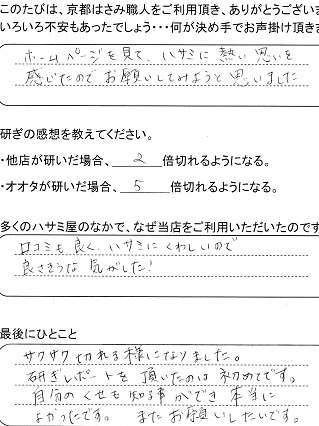 このたびは、京都はさみ職人をご利用頂き、ありがとうござい
いろいろ不安もあったでしょう・・・何が決め手でお声掛け頂き
ホームページを見て、ハサミに熱い思いを
感じたのでお願いしてみようと思いました
研ぎの感想を教えてください。
・他店が研いだ場合、 2 倍切れるようになる。
・オオタが研いだ場合、 5 倍切れるようになる。
多くのハサミ屋のなかで、なぜ当店をご利用いただいたのです
口コミも良く、ハサミにくわしいので
良さそうな気がした!
最後にひとこと
サクサク切れる様になりました。
研ぎレポートを頂いたのは初めてです。
自分のくせも知る事ができ本当に
よかったです。 またお願いしたいです。